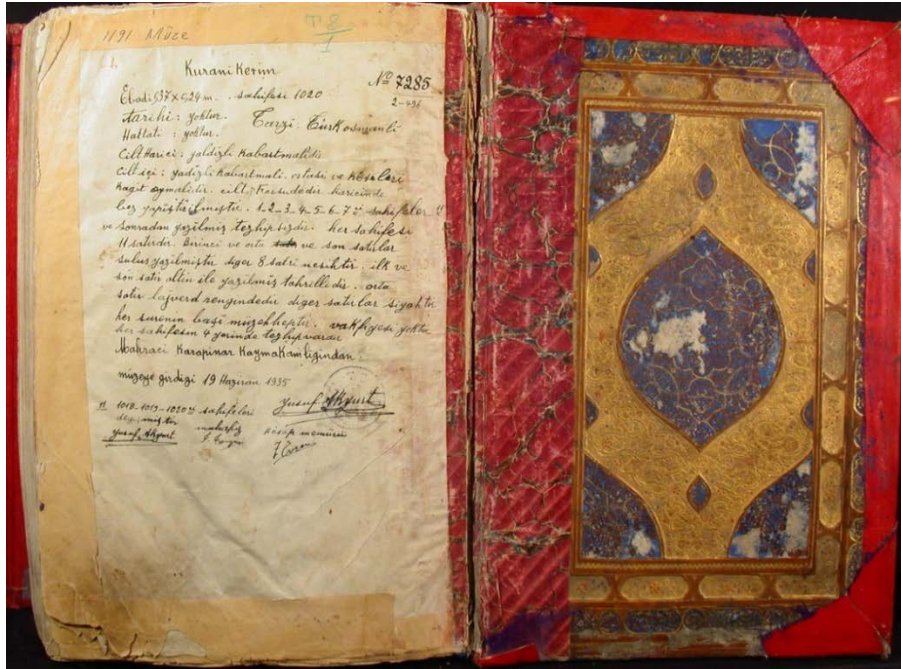 1191 Müze
Kurani Kerim
No 7285
2-491
Ebadi 0,37 x 0,24 m. sahifesi 1020
Tarihi: yoktur. Tarzi: Türk osmanli
Hattati: yoktur.
Cilt Harici: jaldizli kabartmalidir
Cilt içi: yadizli kabartmali. ortasi ve köşeleri
kagit oymalidir. cilt haricinde
bez yapiştirilmiştir. 1-2-3-4-5-6-7 sahifeler
ve sonradan yazilmiş tezhipsizdir. her sahifesi
11 satırdır. Birinci ve orta ve son satırlar
sulus yazilmiştir diger 8 satri nesihtir. ilk ve
son satır altin ile yazilmiş tahrillidir. orta
satır lajverd rengindedir diger satırlar siyahtır
her surenin başi müzehheptir. vakfiyesi yoktur
her sahifesin 4 yerinde tezhip vardır
Mahreci Karapinar Kaymakamligindan
müzeye girdigi 19 Haziran 1935
Yusuf Akyurt
1018-1019-1020 sahifeleri
Yusuf Akyurt